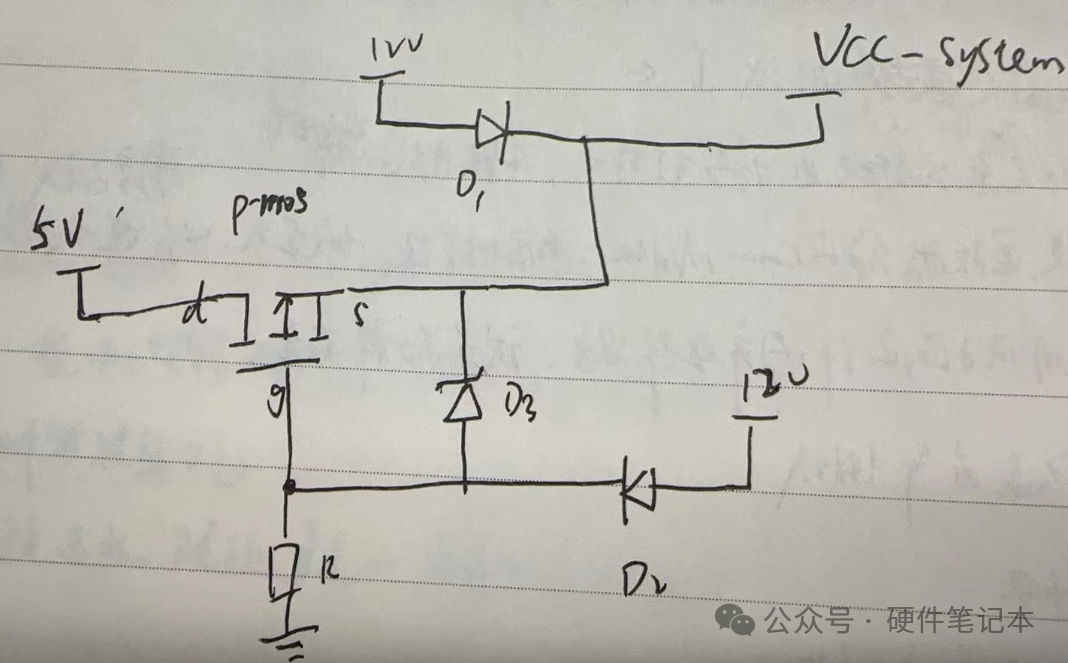 12V
VCC-system
D1
p-mos
5V
d
s
g
D3
12V
R
D2
公众号 · 硬件笔记本